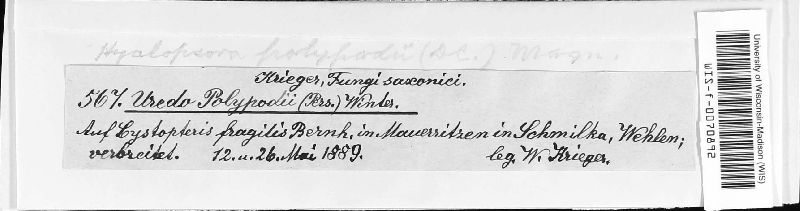 Hyalopsora polypodii (DC.) Magn.
Krieger, Fungi saxonici.
567. Uredo Polypodii (Pers.) Winter.
Auf Cystopteris fragilis Bernh. in Mauerritzen in Schmilka, Wehlen;
verbreitet. 12. u. 26. Mai 1889. leg. W. Krieger.
University of Wisconsin-Madison (WIS)
WIS-F-0070892